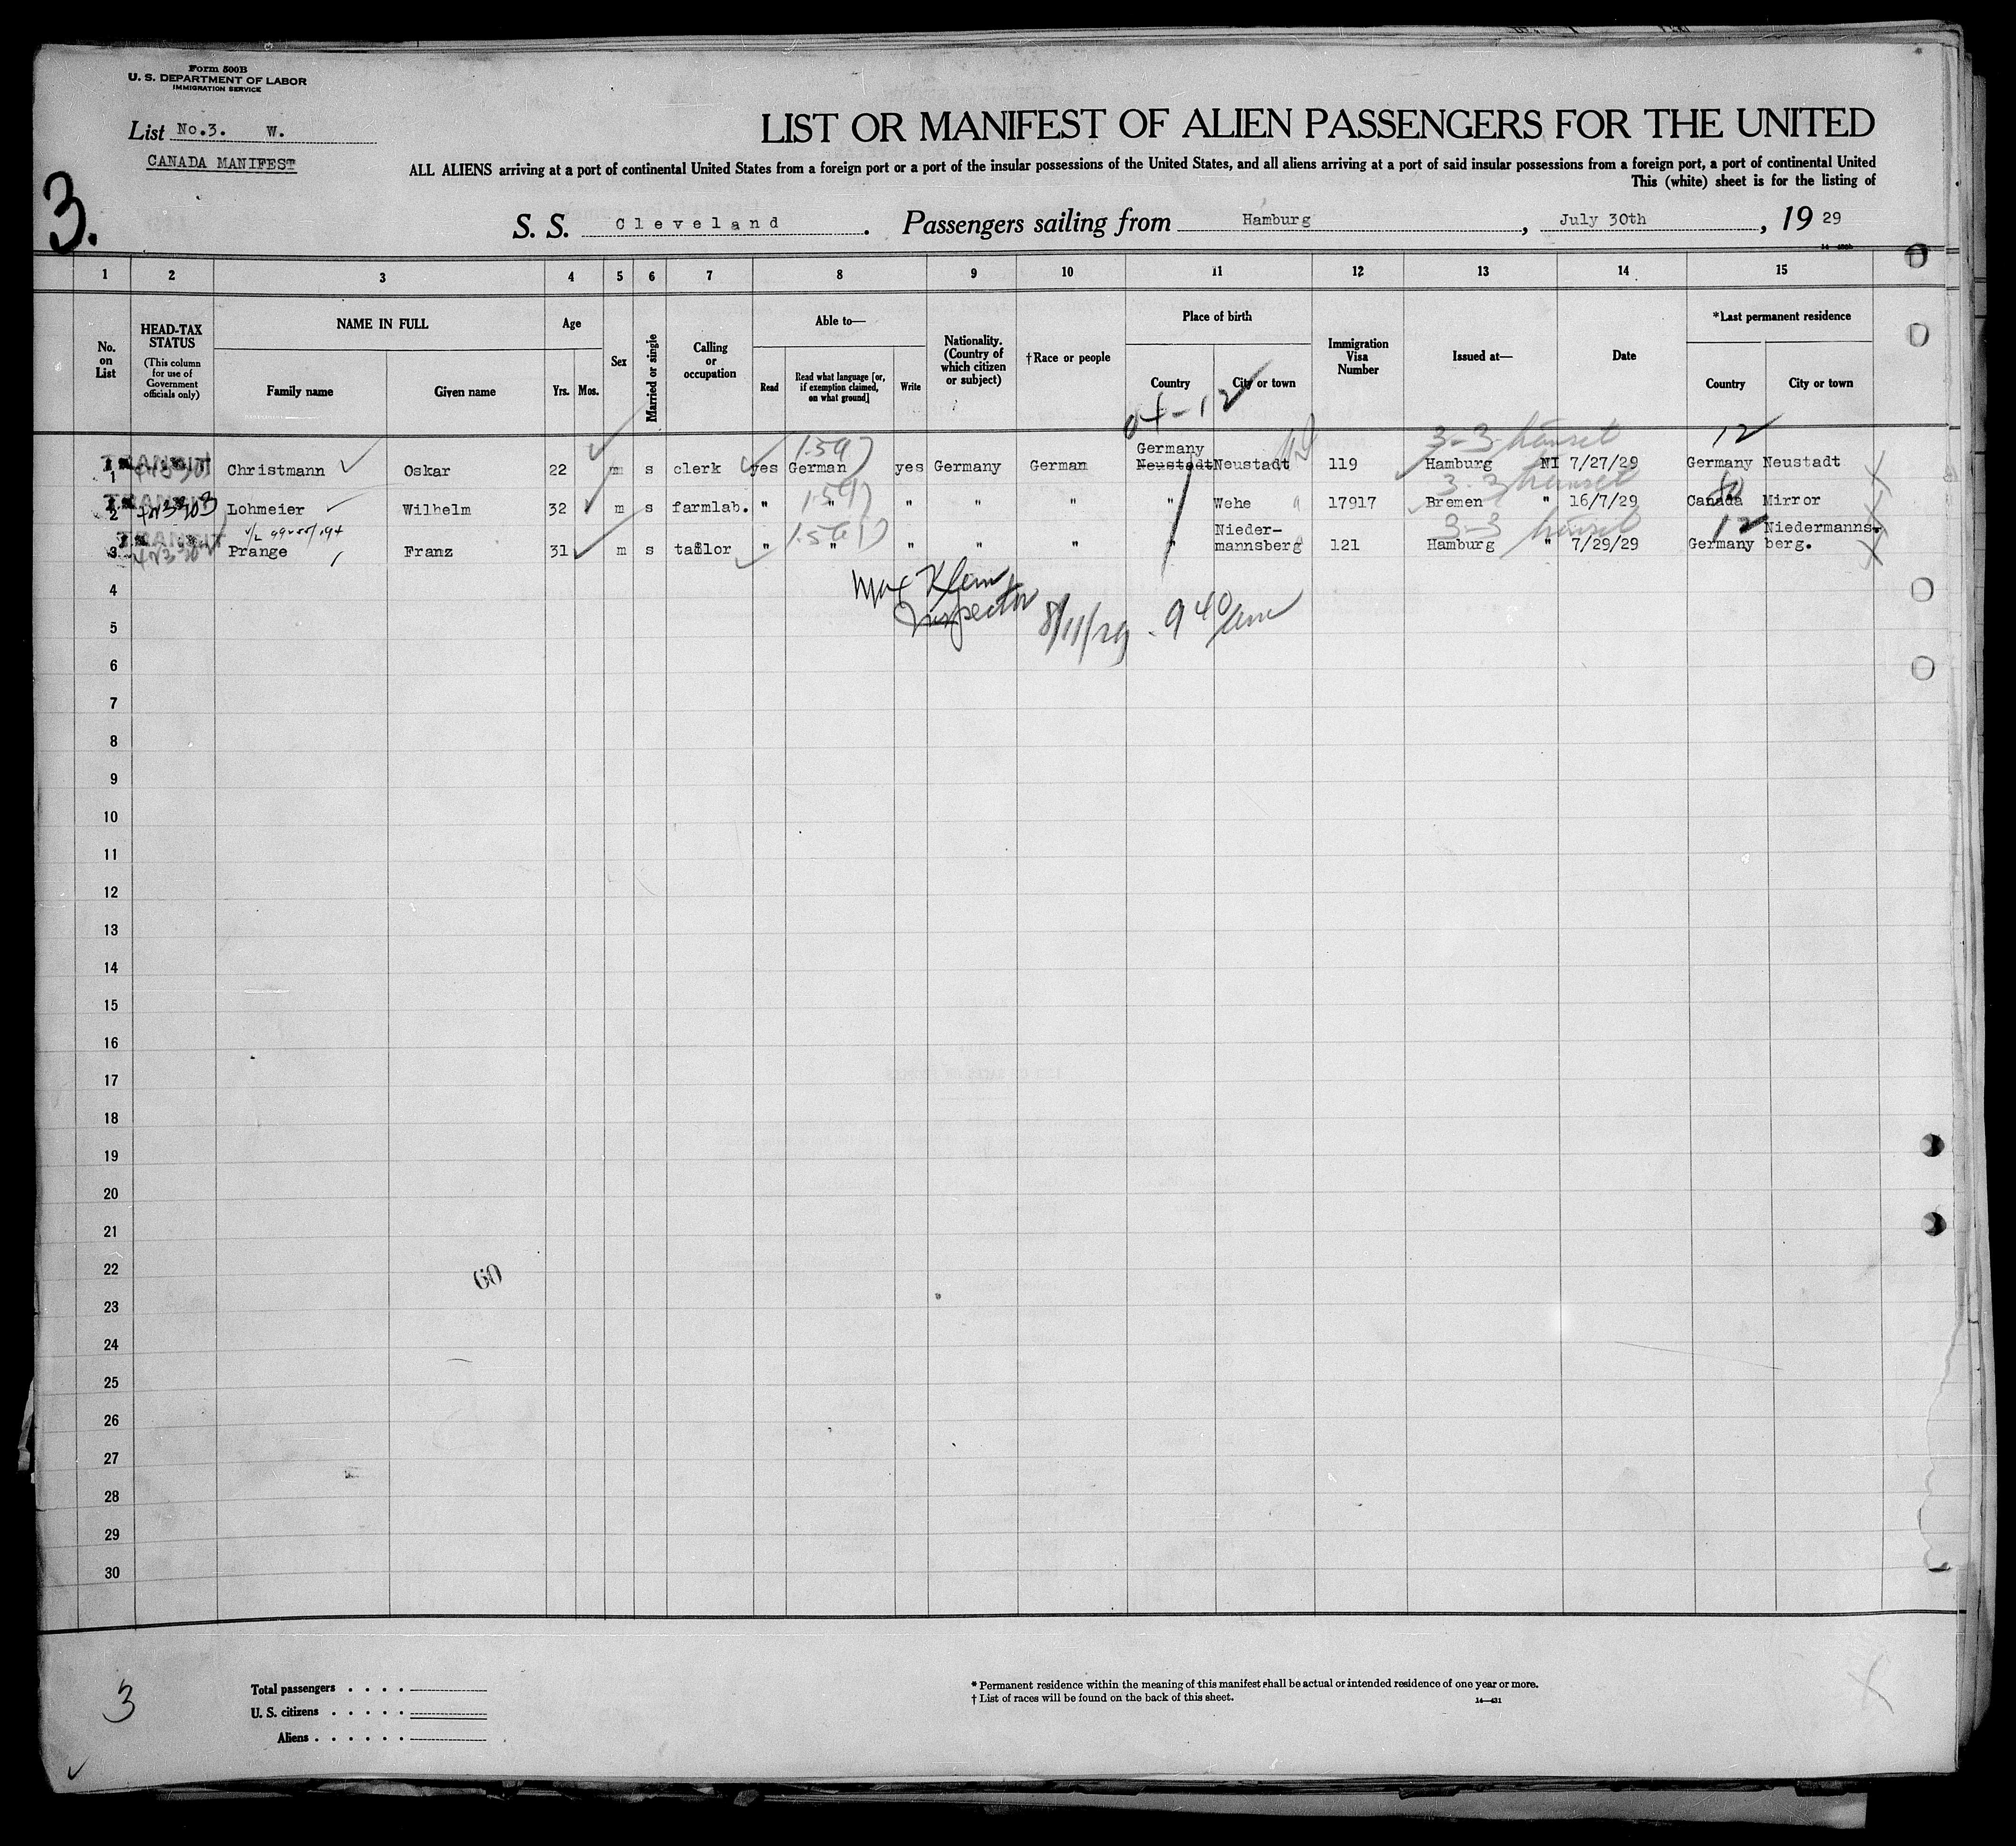 Form 500B
U. S. DEPARTMENT OF LABOR
IMMIGRATION SERVICE
List No.3. W.
CANADA MANIFEST
3.
LIST OR MANIFEST OF ALIEN PASSENGERS FOR THE UNITED
ALL ALIENS arriving at a port of continental United States from a foreign port or a port of the insular possessions of the United States, and all aliens arriving at a port of said insular possessions from a foreign port, a port of continental United
This (white) sheet is for the listing of
S. S. Cleveland. Passengers sailing from Hamburg, July 30th, 19 29
1 2 3 4 5 6 7 8 9 10 11 12 13 14 15
No. on List
HEAD-TAX STATUS
(This column for use of Government officials only)
NAME IN FULL
Family name
Given name
Age
Yrs. Mos.
Sex
Married or single
Calling or occupation
Able to—
Read
Read what language [or, if exemption claimed, on what ground]
Write
Nationality. (Country of which citizen or subject)
†Race or people
Place of birth
Country
City or town
Immigration Visa Number
Issued at—
Date
*Last permanent residence
Country
City or town
04-12
1 TRANSIT Christmann Oskar 22 m s clerk yes German yes Germany German Germany Neustadt Neustadt 119 Hamburg NI 7/27/29 Germany Neustadt
3-3 12
2 TRANSIT Lohmeier Wilhelm 32 m s farmlab. " " " " " " Wehe 17917 Bremen " 16/7/29 Canada Mirror
3-3
3 TRANSIT Prange Franz 31 m s tailor " " " " " " Nieder-mannsberg 121 Hamburg " 7/29/29 Germany Niedermanns-berg.
3-3 12
Max Klein
Inspector 8/11/29 . 9 40/am
4
5
6
7
8
9
10
11
12
13
14
15
16
17
18
19
20
21
22
60
23
24
25
26
27
28
29
30
3
Total passengers . . . .
U. S. citizens . . . . .
Aliens . . . . . .
* Permanent residence within the meaning of this manifest shall be actual or intended residence of one year or more.
† List of races will be found on the back of this sheet.
14—431